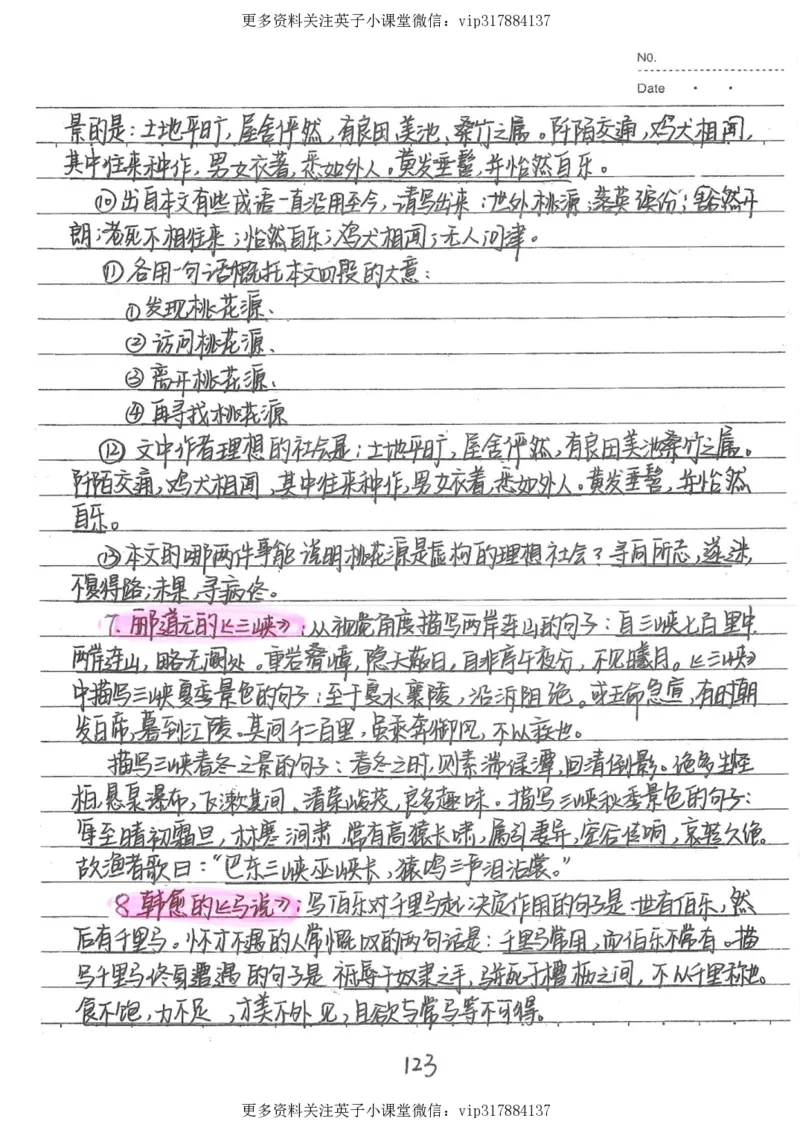 更多资料关注英子小课堂微信：vip317884137
N0.
Date · ·
景的是：土地平旷，屋舍俨然，有良田、美池、桑竹之属。阡陌交通，鸡犬相闻，
其中往来种作，男女衣著，悉如外人。黄发垂髫，并怡然自乐。
⑩出自本文有些成语一直沿用至今，请写出来：世外桃源；落英缤纷；豁然开
朗；老死不相往来；怡然自乐；鸡犬相闻；无人问津。
⑪各用一句话概括本文四段的大意：
①发现桃花源、
②访问桃花源、
③离开桃花源、
④再寻找桃花源
⑫文中作者理想的社会是：土地平旷，屋舍俨然，有良田美池桑竹之属。
阡陌交通，鸡犬相闻，其中往来种作，男女衣着，悉如外人。黄发垂髫，并怡然
自乐。
⑬本文的哪两件事能说明桃花源是虚构的理想社会？寻向所志，遂迷，
不复得路；未果，寻病终。
7. 郦道元的《三峡》：从视觉角度描写两岸连山的句子：自三峡七百里中，
两岸连山，略无阙处。重岩叠嶂，隐天蔽日，自非亭午夜分，不见曦月。《三峡》
中描写三峡夏季景色的句子：至于夏水襄陵，沿溯阻绝。或王命急宣，有时朝
发白帝，暮到江陵。其间千二百里，虽乘奔御风，不以疾也。
描写三峡春冬之景的句子：春冬之时，则素湍绿潭，回清倒影。绝多生怪
柏，悬泉瀑布，飞漱其间，清荣峻茂，良多趣味。描写三峡秋季景色的句子：
每至晴初霜旦，林寒涧肃，常有高猿长啸，属引凄异，空谷传响，哀转久绝。
故渔者歌曰：“巴东三峡巫峡长，猿鸣三声泪沾裳。”
8. 韩愈的《马说》：写伯乐对千里马起决定作用的句子是：世有伯乐，然
后有千里马。怀才不遇的人常慨叹的两句话是：千里马常用，而伯乐不常有。描
写千里马终身遭遇的句子是 祗辱于奴隶之手，骈死于槽枥之间，不以千里称也。
食不饱，力不足，才美不外见，且欲与常马等不可得。
123
更多资料关注英子小课堂微信：vip317884137